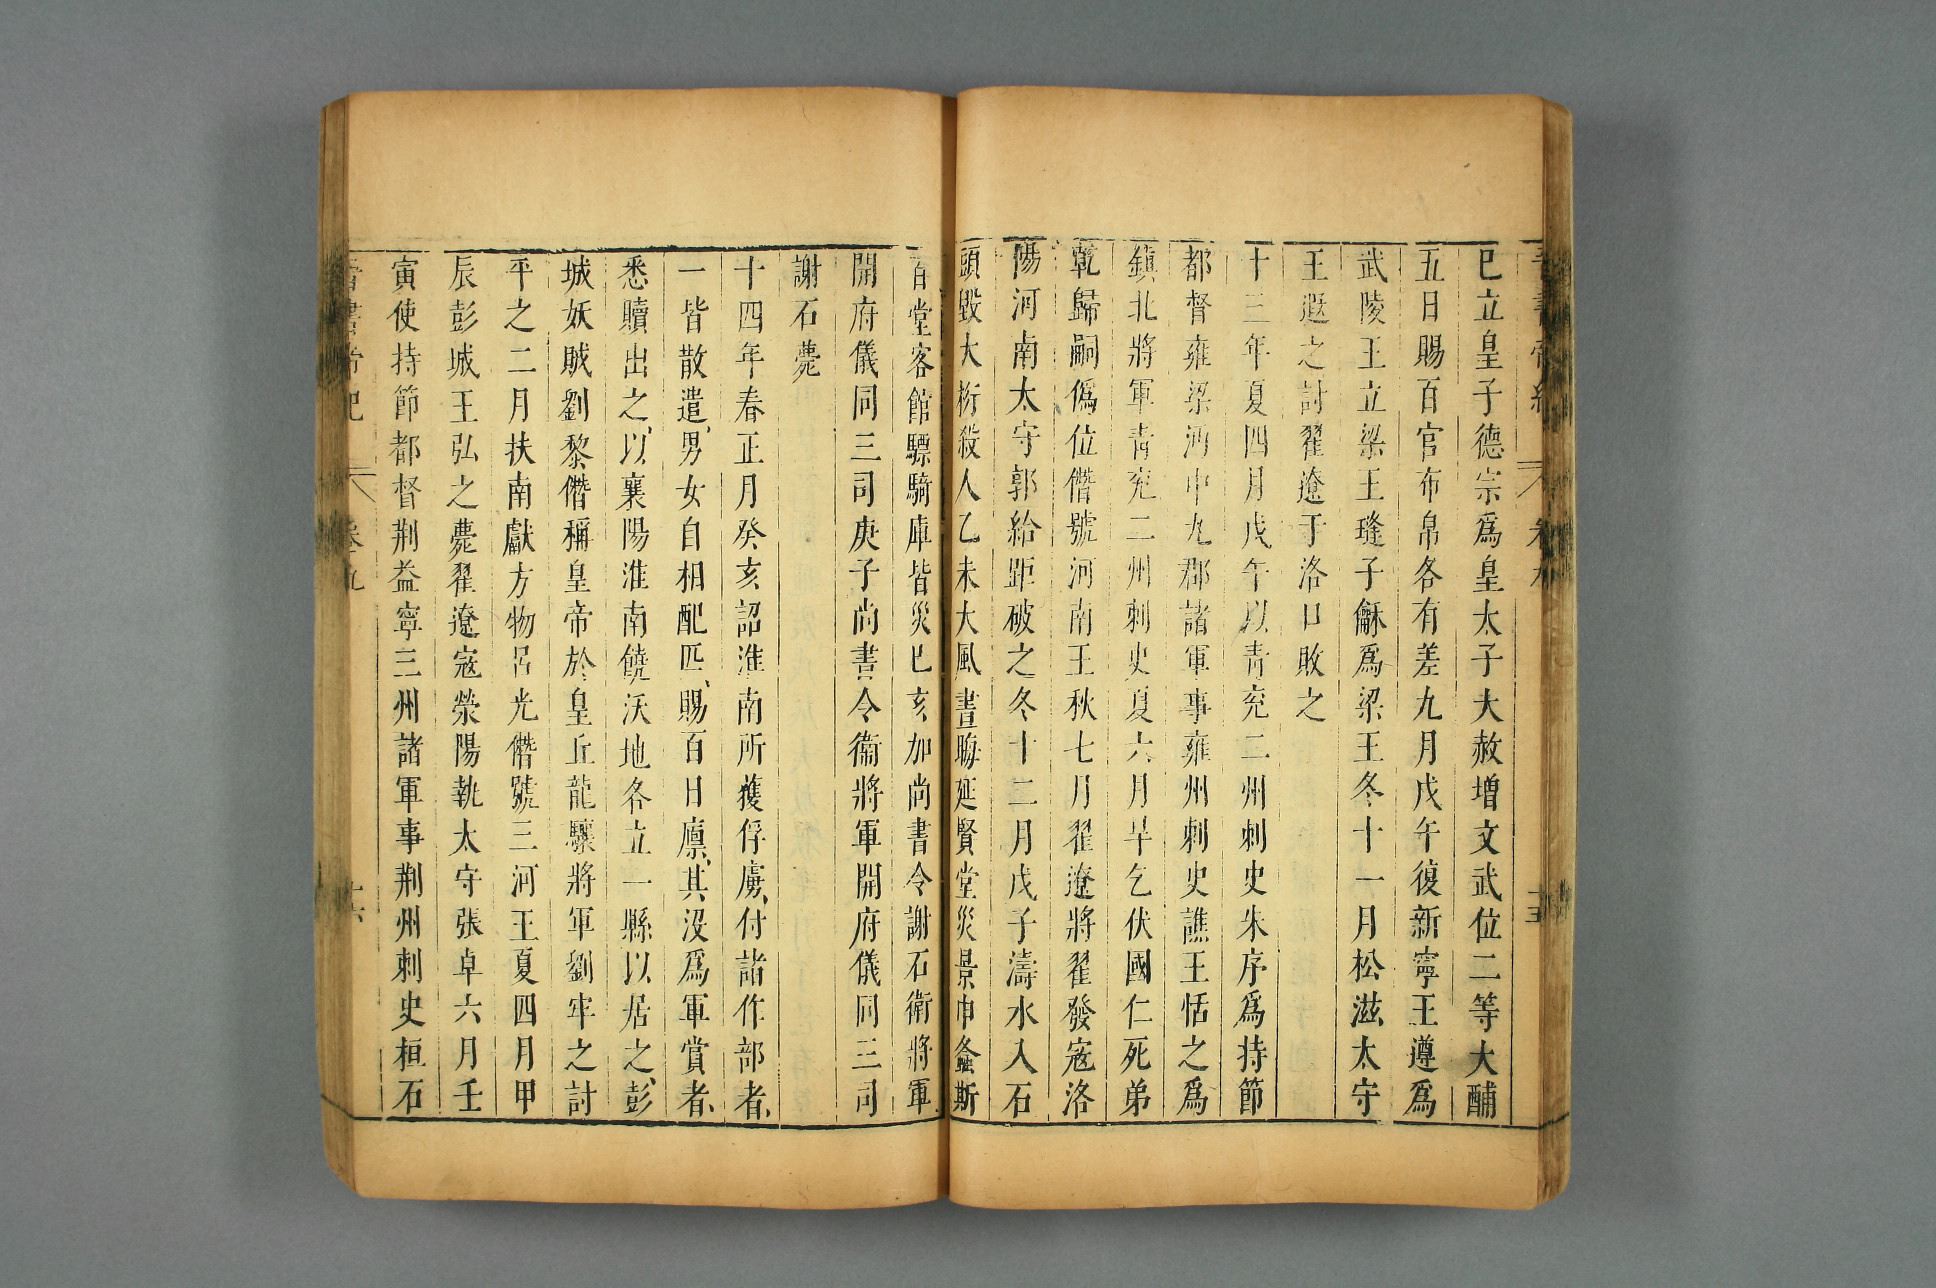 晉書帝紀 卷九 十五
已立皇子德宗爲皇太子大赦增文武位二等大酺
五日賜百官布帛各有差九月戊午復新寧王遵爲
武陵王立梁王㻴子龢爲梁王冬十一月松滋太守
王遐之討翟遼于洛口敗之
十三年夏四月戊午以靑兗二州刺史朱序爲持節
都督雍梁沔中九郡諸軍事雍州刺史譙王恬之爲
鎭北將軍靑兗二州刺史夏六月旱乞伏國仁死弟
乾歸嗣僞位僭號河南王秋七月翟遼將翟發寇洛
陽河南太守郭給距破之冬十二月戊子濤水入石
頭毀大桁殺人乙未大風晝晦延賢堂災景申螽斯
百堂客館驃騎庫皆災已亥加尚書令謝石衛將軍
開府儀同三司庚子尚書令衞將軍開府儀同三司
謝石薨
十四年春正月癸亥詔淮南所獲俘虜、付諸作部者、
一皆散遣、男女自相配匹、賜百日廩、其沒爲軍賞者、
悉贖出之、以襄陽淮南饒沃地各立一縣以居之、彭
城妖賊劉黎僭稱皇帝於皇丘龍驤將軍劉牢之討
平之二月扶南獻方物呂光僭號三河王夏四月甲
辰彭城王弘之薨翟遼寇滎陽執太守張卓六月壬
寅使持節都督荆益寧三州諸軍事荆州刺史桓石
晉書帝紀 卷九 十六